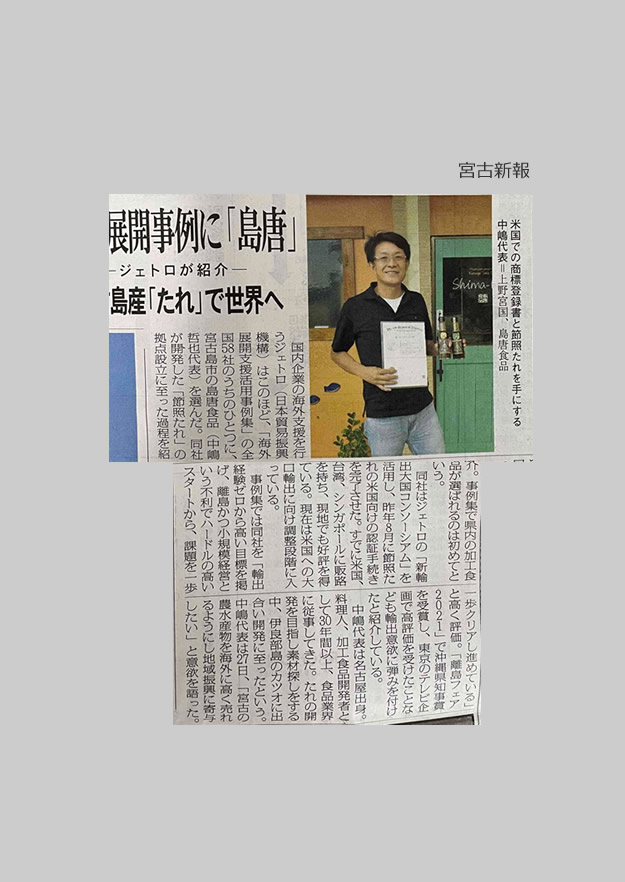 宮古新報
展開事例に「島唐」
―ジェトロが紹介―
島産「たれ」で世界へ
米国での商標登録書と節照たれを手にする
中嶋代表＝上野宮国、島唐食品
Shima-
国内企業の海外支援を行
うジェトロ（日本貿易振興
機構）はこのほど、「海外
展開支援活用事例集」の全
国58社のうちのひとつに、
宮古島市の島唐食品（中嶋
哲也代表）を選んだ。同社
が開発した「節照たれ」の
拠点設立に至った過程を紹
介。事例集で県内の加工食
品が選ばれるのは初めてと
いう。
同社はジェトロの「新輸
出大国コンソーシアム」を
活用し、昨年8月に節照た
れの米国向けの認証手続き
を完了させた。すでに米国、
台湾、シンガポールに販路
を持ち、現地でも好評を得
ている。現在は米国への大
口輸出に向け調整段階に入
っている。
事例集では同社を「輸出
経験ゼロから高い目標を掲
げ、離島かつ小規模経営と
いう不利でハードルの高い
スタートから、課題を一歩
一歩クリアし進めている」
と高く評価。「離島フェア
2021」で沖縄県知事賞
を受賞し、東京のテレビ企
画で高評価を受けたことな
ども輸出意欲に弾みを付け
たと紹介している。
中嶋代表は名古屋出身。
料理人、加工食品開発者と
して30年間以上、食品業界
に従事してきた。たれの開
発を目指し素材探しをする
中、伊良部島のカツオに出
合い開発に至ったという。
中嶋代表は27日、「宮古の
農水産物を海外に高く売れ
るようにし地域振興に寄与
したい」と意欲を語った。